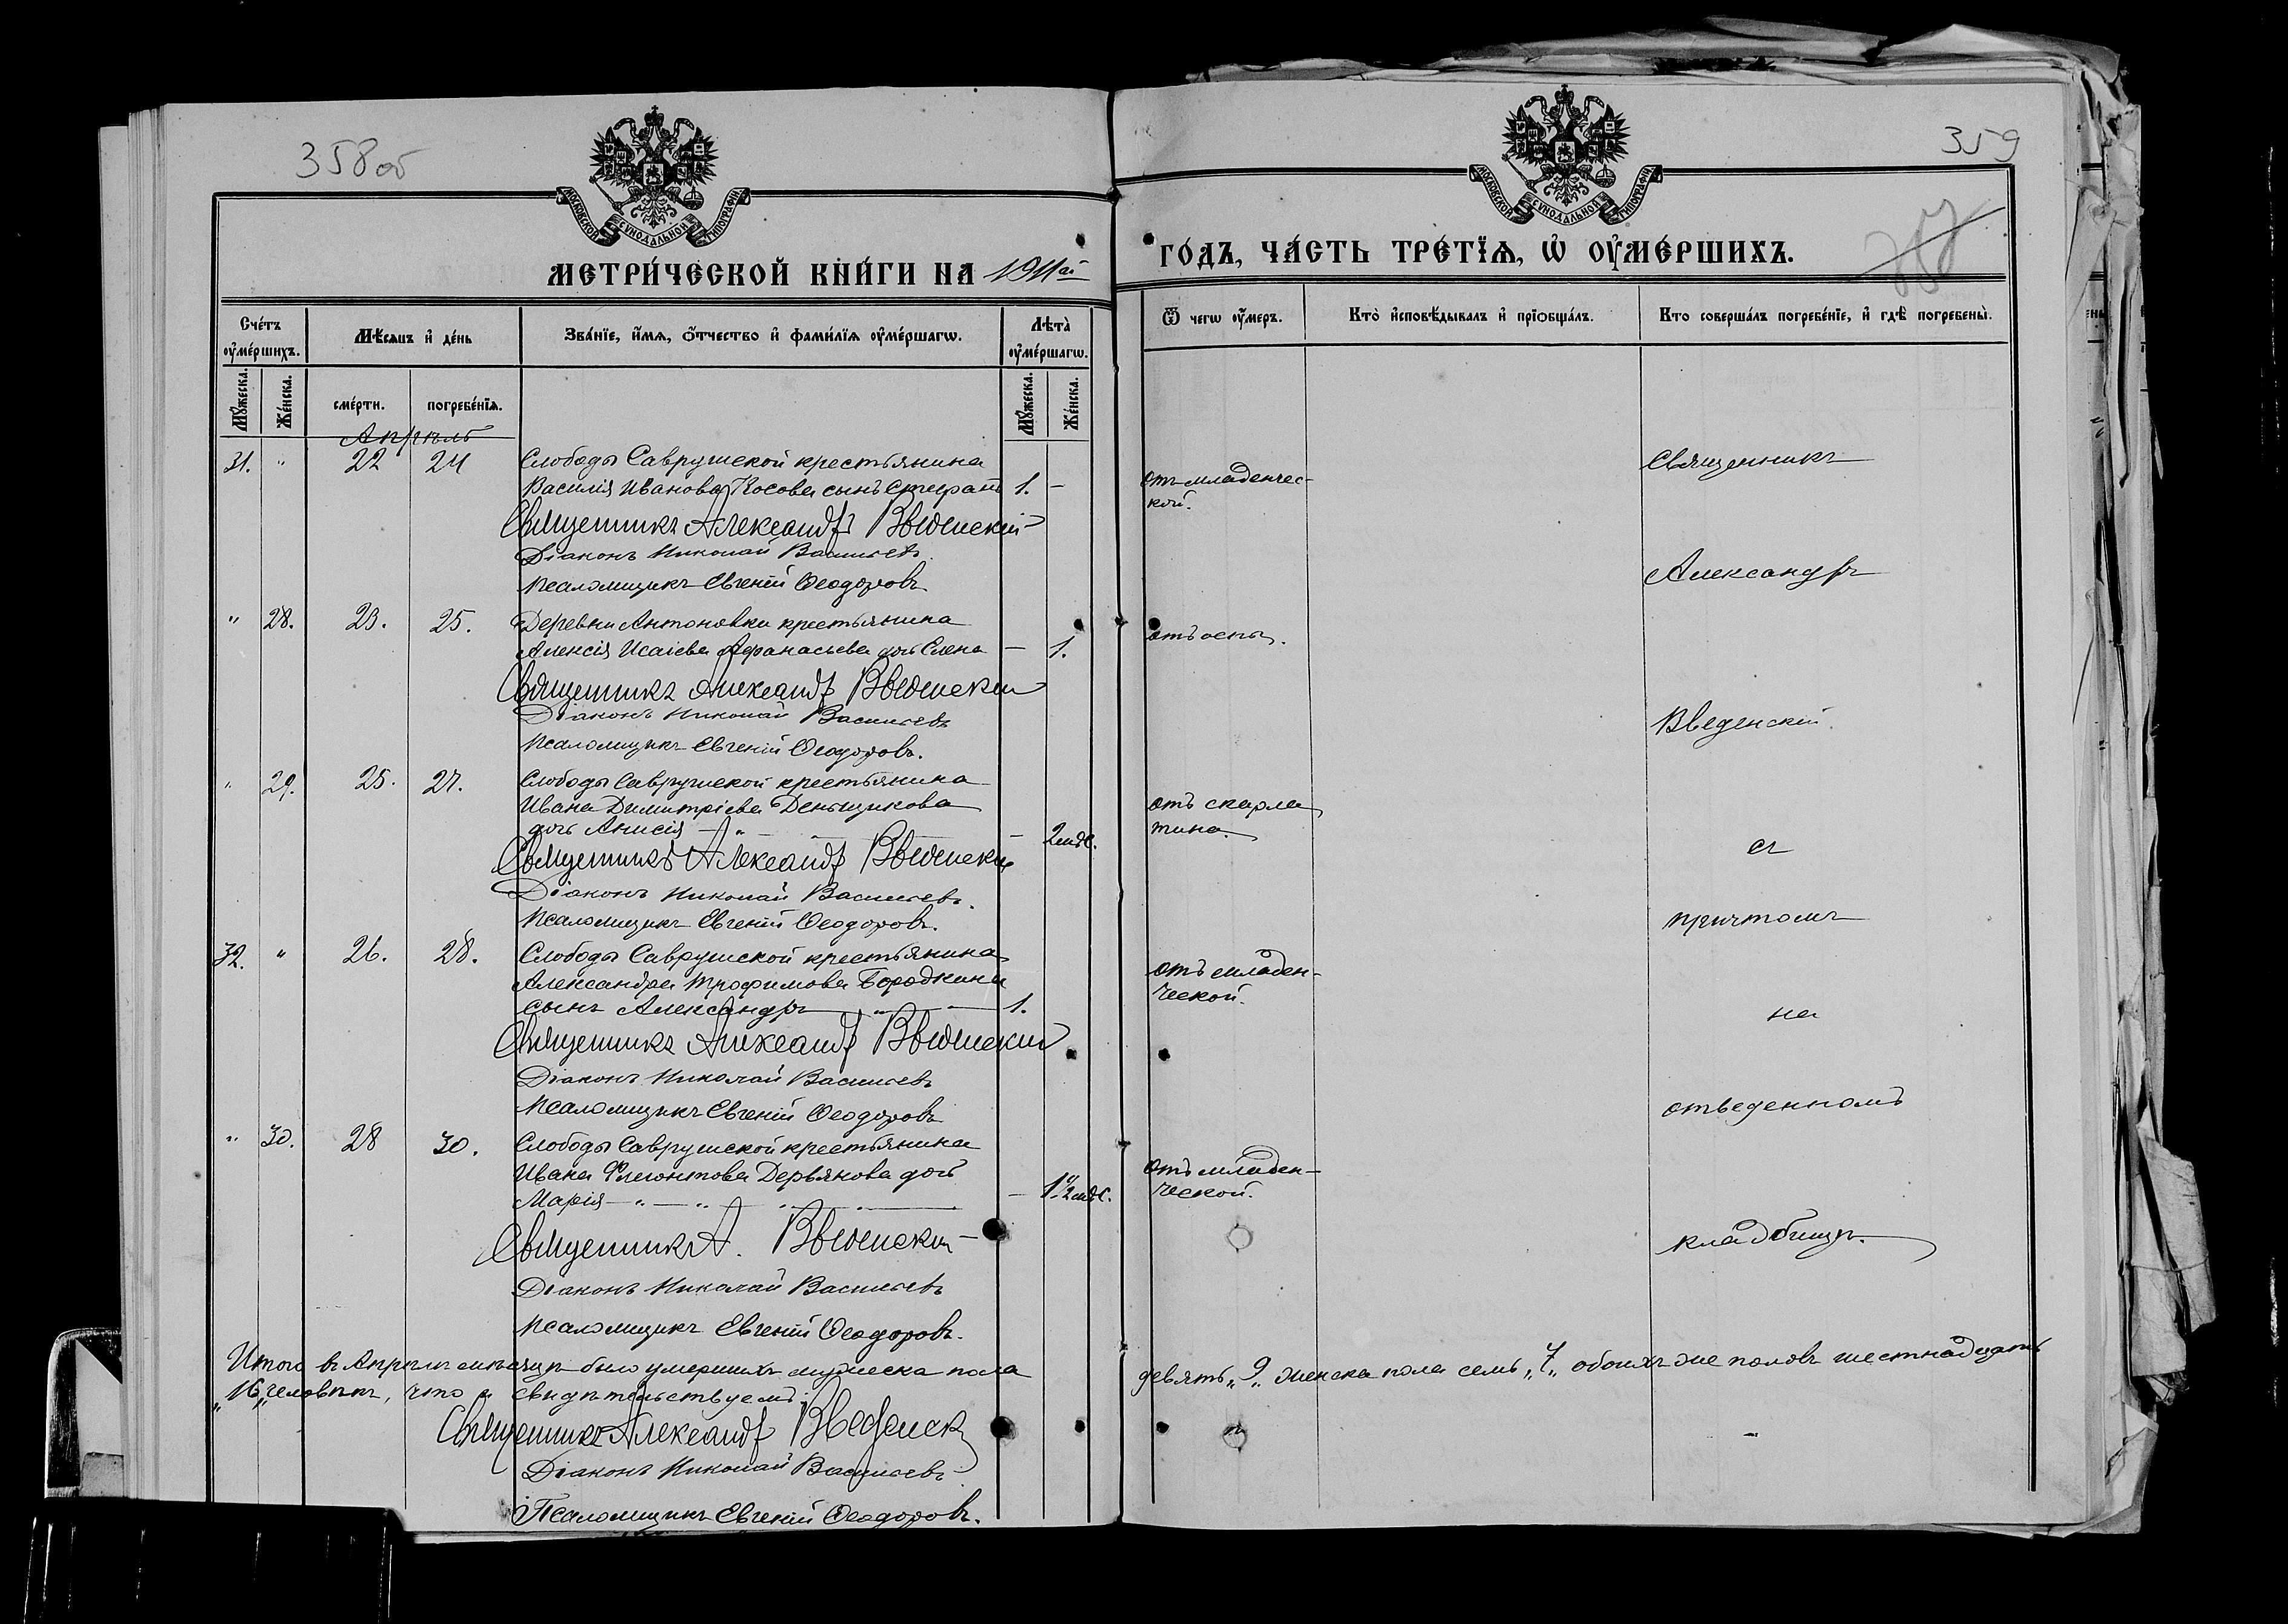 358об
МОСКОВСКОЙ СѴНОДАЛЬНОЙ ТИПОГРАФІИ
МЕТРИ́ЧЕСКОЙ КНИ́ГИ НА 1911ый
Сче́тъ ᲂу҆ме́ршихъ.
Мѣ́сѧцъ и҆ де́нь
Зва́нїе, и҆́мѧ, ѻ҆́тчество и҆ фами́лїѧ ᲂу҆ме́ршагѡ.
Лѣ̑та̀ ᲂу҆ме́ршагѡ.
Мꙋ́жеска.
Же́нска.
сме́рти.
погребе́нїѧ.
Мꙋ́жеска.
Же́нска.
Апрѣль
31. " 22 24 Слободы Саврушской крестьянина
Василія Иванова Косова сынъ Стефанъ 1. –
Священникъ Александръ Введенскій
Діаконъ Николай Васильевъ
Псаломщикъ Евгеній Ѳеодоровъ
" 28. 23. 25. Деревни Антоновки крестьянина
Алексія Исаіева Афанасьева дочь Елена – 1.
Священникъ Александръ Введенскій
Діаконъ Николай Васильевъ
Псаломщикъ Евгеній Ѳеодоровъ.
" 29. 25. 27. Слободы Саврушской крестьянина
Ивана Димитріева Деньщикова
дочь Анисія – " – – 2 мѣс.
Священникъ Александръ Введенскій
Діаконъ Николай Васильевъ.
Псаломщикъ Евгеній Ѳеодоровъ.
32. " 26. 28. Слободы Саврушской крестьянина
Александра Трофимова Бородкина
сынъ Александръ " – 1.
Священникъ Александръ Введенскій
Діаконъ Николай Васильевъ
Псаломщикъ Евгеній Ѳеодоровъ
" 30. 28 30. Слободы Саврушской крестьянина
Ивана Флегонтова Дервянова дочь
Марія – " – " – 1 1/2 мѣс.
Священникъ А. Введенскій
Діаконъ Николай Васильевъ
Псаломщикъ Евгеній Ѳеодоровъ.
Итого въ Апрѣлѣ мѣсяцѣ было умершихъ мужеска пола
„16„ человѣкъ, что и свидѣтельствуемъ:
Священникъ Александръ Введенск
Діаконъ Николай Васильевъ
Псаломщикъ Евгеній Ѳеодоровъ.
359
МОСКОВСКОЙ СѴНОДАЛЬНОЙ ТИПОГРАФІИ
ГО́ДЪ, ЧА́СТЬ ТРЕ́ТЇѦ, Ѡ҆ ОУ҆МЕ́РШИХЪ.
Ѿ чегѡ ᲂу҆́меръ.
Кто̀ и҆сповѣ́дывалъ и҆ прїѡбща́лъ.
Кто соверша́лъ погребе́нїе, и҆ гдѣ̀ погребены̀.
отъ младенчес-
кой.
Священникъ
Александръ
отъ оспы.
Введенскій.
отъ скарла
тина.
съ
причтомъ
отъ младен-
ческой.
на
отведенномъ
отъ младен-
ческой.
кладбищѣ.
девять „9„ женска пола семь „7„ обоихъ же половъ шестнадцать